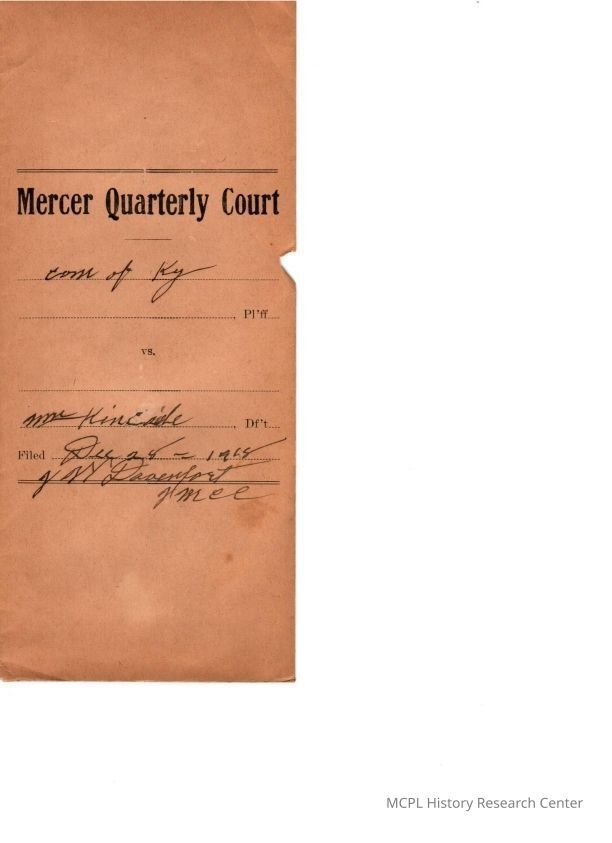 Mercer Quarterly Court
com of Ky
Pl'ff
vs.
Wm Kincaide, Df't.
Filed Dec 28 - 1918
J W Davenport
J M C C
MCPL History Research Center